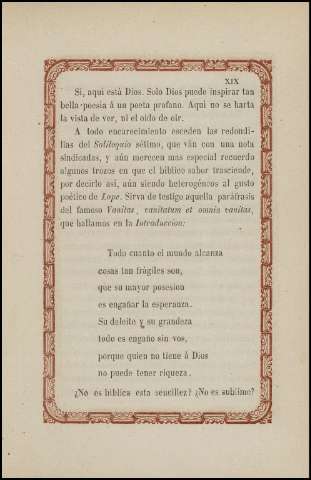 XIX
Si, aqui está Dios. Solo Dios puede inspirar tan
bella poesia á un poeta profano. Aqui no se harta
la vista de ver, ni el oido de oir.
A todo encarecimiento esceden las redondi-
llas del Soliloquio sétimo, que ván con una nota
sindicadas, y aún merecen mas especial recuerdo
algunos trozos en que el bíblico sabor trasciende,
por decirlo asi, aún siendo heterogéneos al gusto
poético de Lope. Sirva de testigo aquella paráfrasis
del famoso Vanitas, vanitatum et omnia vanitas,
que hallamos en la Introduccion:
Todo cuanto el mundo alcanza
cosas tan frágiles son,
que su mayor posesion
es engañar la esperanza.
Su deleite y su grandeza
todo es engaño sin vos,
porque quien no tiene á Dios
no puede tener riqueza.
¿No es bíblica esta sencillez? ¿No es sublime?